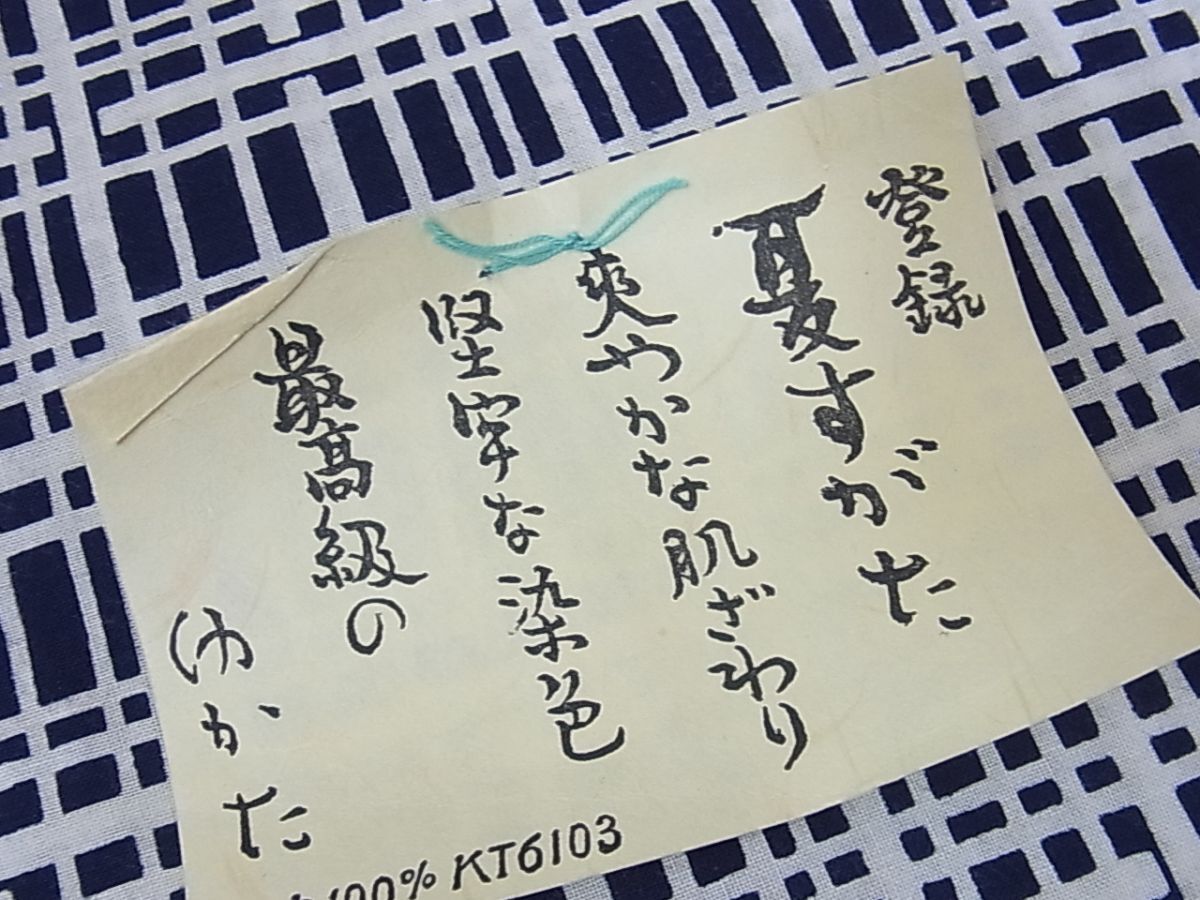 登録
夏すがた
爽やかな肌ざわり
堅牢な染色
最高級の
ゆかた
100% KT6103